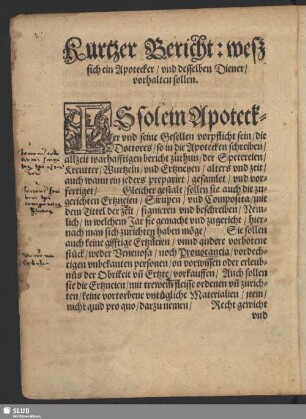 Kurtzer Bericht: weß
sich ein Apotecker / vnd desselben Diener /
vorhalten sollen.
ES sol ein Apoteck-
er vnd seine Gesellen vorpflicht sein / die
Doctores / so in die Apotecken schreiben /
allzeit warhafftigen bericht zuthun / der Spetereien /
Kreutter / Wurtzeln / vnd Ertzneyen / alters vnd zeit /
auch wann ein jeders preparirt / gesamlet / vnd vor-
fertiget / Gleicher gestalt / sollen sie auch die zu-
gerichten Ertzneien / Sirupen / vnd Composita / mit
dem Tittel der zeit / signieren vnd beschreiben / Nem-
lich / in welchen Jar sie gemacht vnd zugericht / hier-
nach man sich zurichten haben möge / Sie sollen
auch keine gifftige Ertzneien / vnnd andere vorbotene
stück / weder Venenosa / noch Prouocantia / vordech-
tigen vnbekanten personen / on vorwissen oder erleub-
nüs der Obrikeit vñ Ertzte / vorkauffen / Auch sollen
sie die Ertzneien / mit trewem fleisse ordenen vñ zurich-
ten / keine vortorbene vntügliche Materialien / item /
nicht quid pro quo / darzu nemen / Recht gewicht
vnd
SLUB